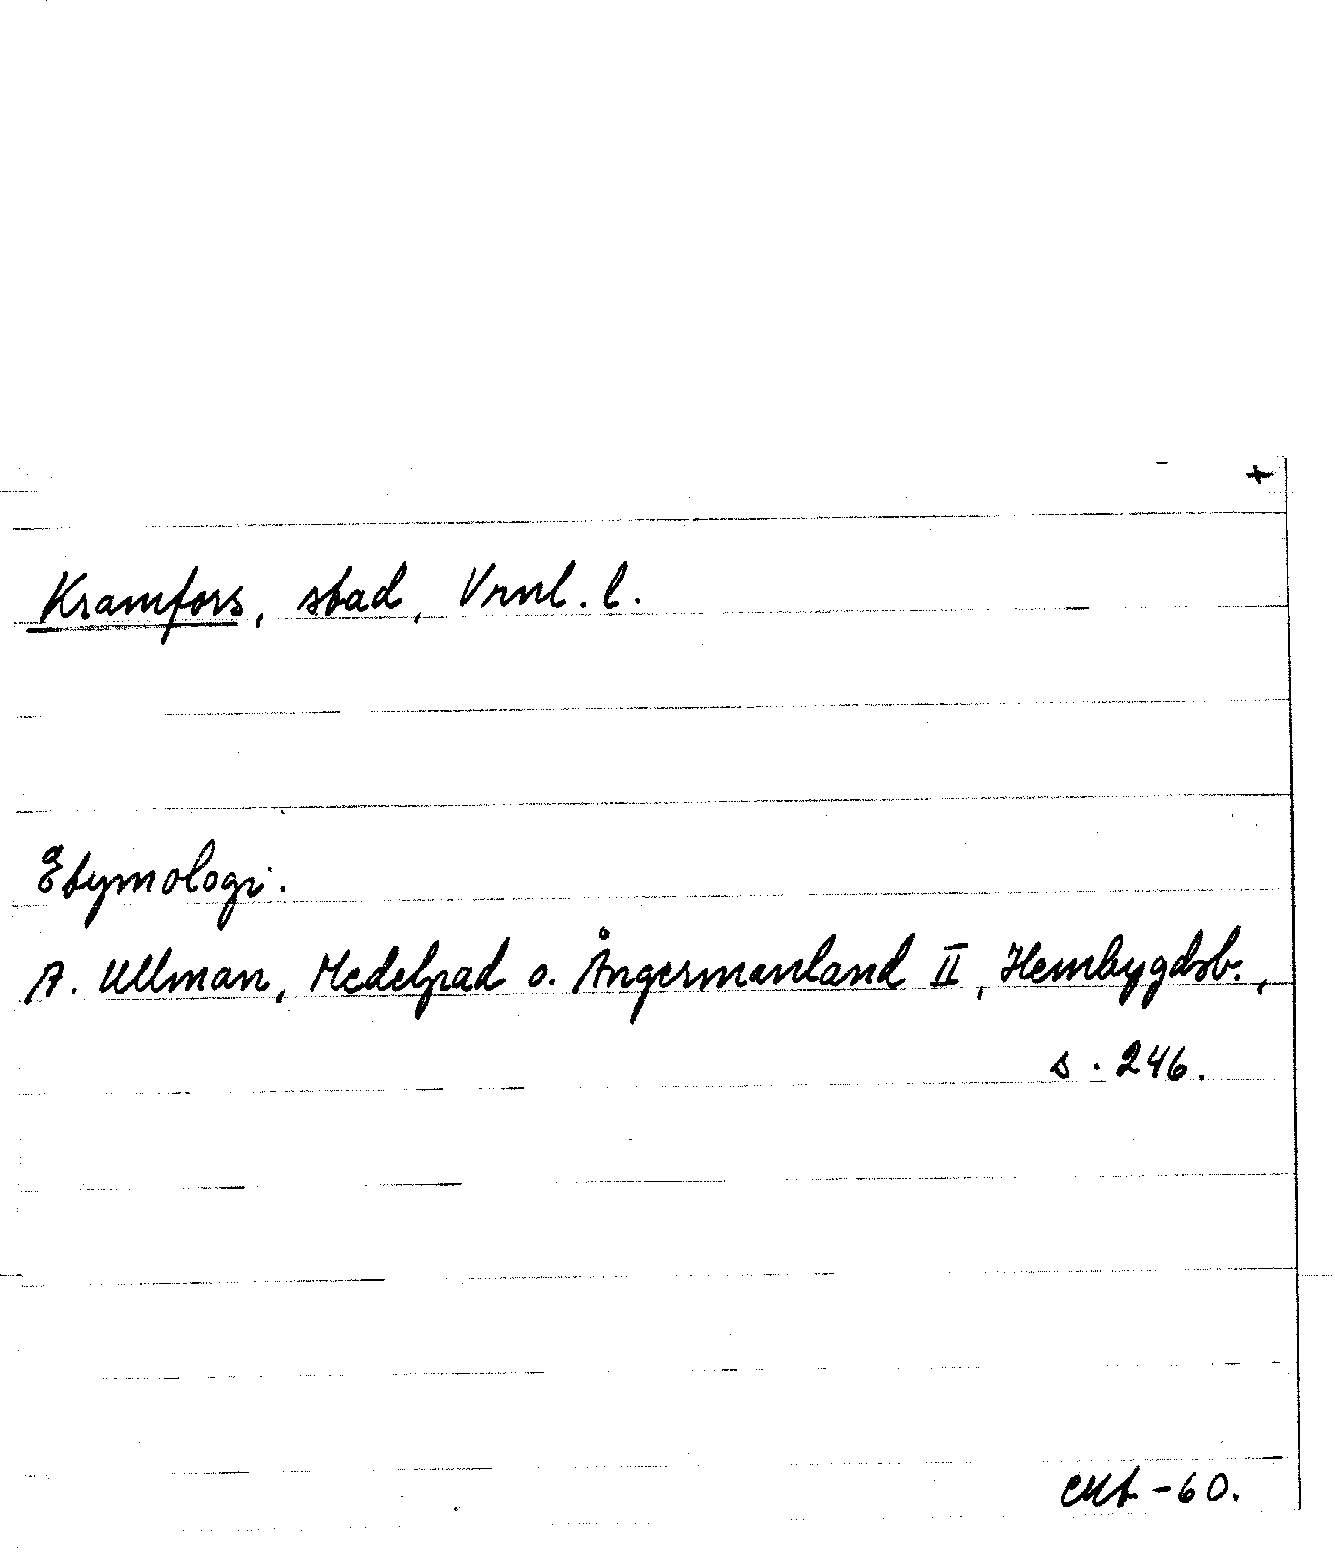 +
Kramfors, stad, Vrnl. l.
Etymologi.
A. Ullman, Medelpad o. Ångermanland II, Hembygdsb.,
s. 246.
-60.